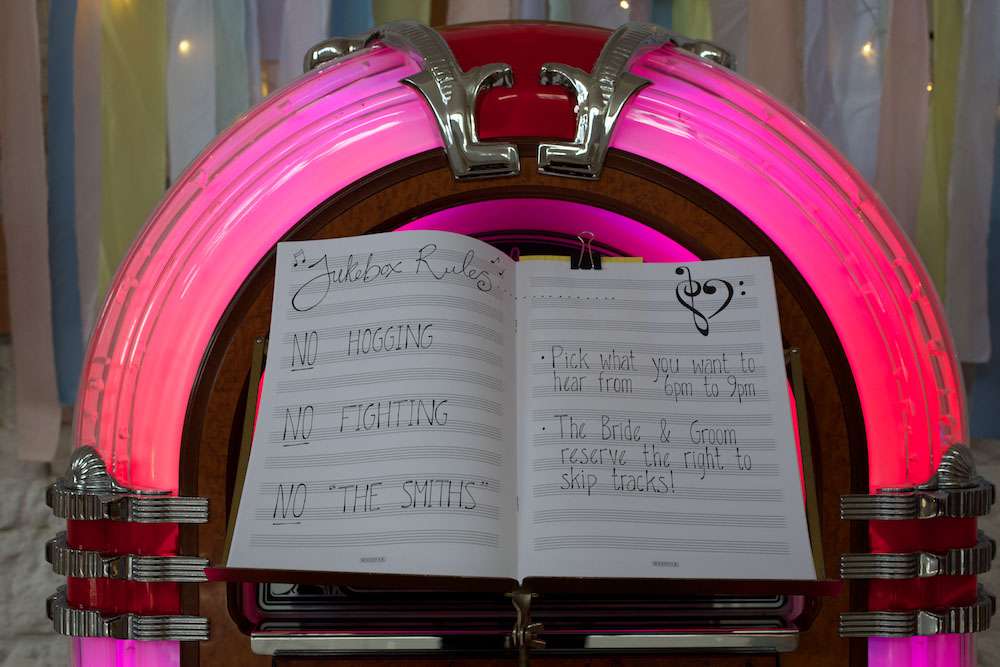 Jukebox Rules
NO HOGGING
NO FIGHTING
NO "THE SMITHS"
• Pick what you want to
hear from 6pm to 9pm
• The Bride & Groom
reserve the right to
skip tracks!